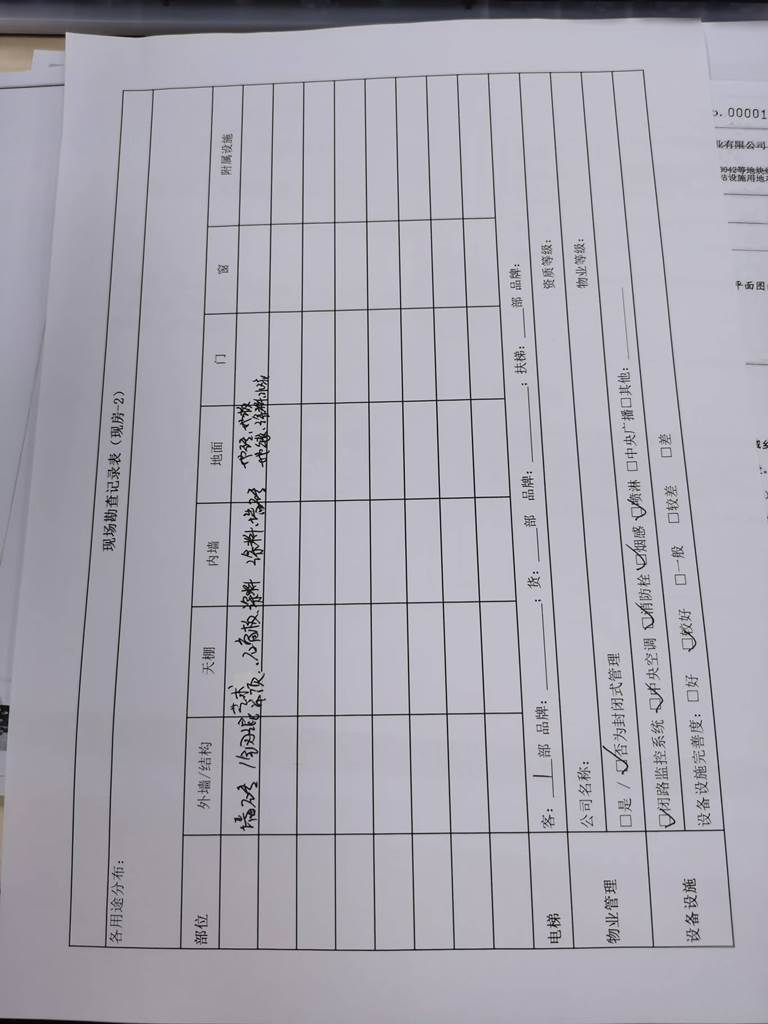 现场勘查记录表（现房-2）
各用途分布：
部位 外墙/结构 天棚 内墙 地面 门 窗 附属设施
墙砖 艺术吊顶、石膏板、涂料 涂料、墙砖 地砖、地板
电梯 客：1部 品牌：______；货：___部 品牌：______；扶梯：___部 品牌：
物业管理 公司名称： 资质等级：
□是 / ☑否为封闭式管理 物业等级：
设备设施 ☑闭路监控系统 ☑中央空调 ☑消防栓 ☑烟感 ☑喷淋 □中央广播□其他：______
设备设施完善度：□好 ☑较好 □一般 □较差 □差
.00001
业有限公司
0042等地块
设施用地
平面图